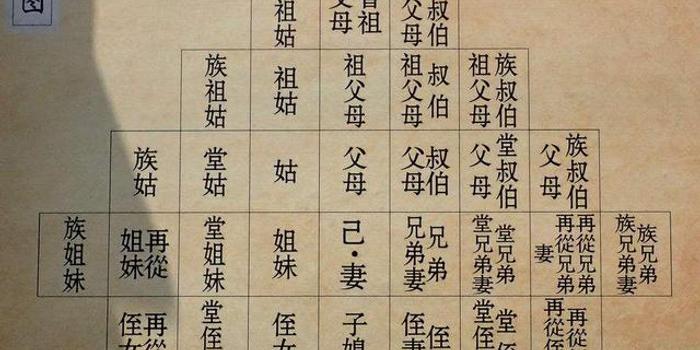 图
叔伯
父母
祖
父母
祖姑
族叔伯
祖父母
叔伯
祖父母
祖父母
祖姑
族祖姑
族叔伯
父母
堂叔伯
父母
叔伯
父母
父母
姑
堂姑
族姑
族兄弟
族兄弟妻
再從兄弟
再從兄弟
妻
堂兄弟
堂兄弟妻
兄弟
兄弟妻
己·妻
姐妹
堂姐妹
再從
姐妹
族姐妹
再從
再從侄
堂
堂侄
侄
侄妻
子媳
侄女
堂侄
再從
侄女